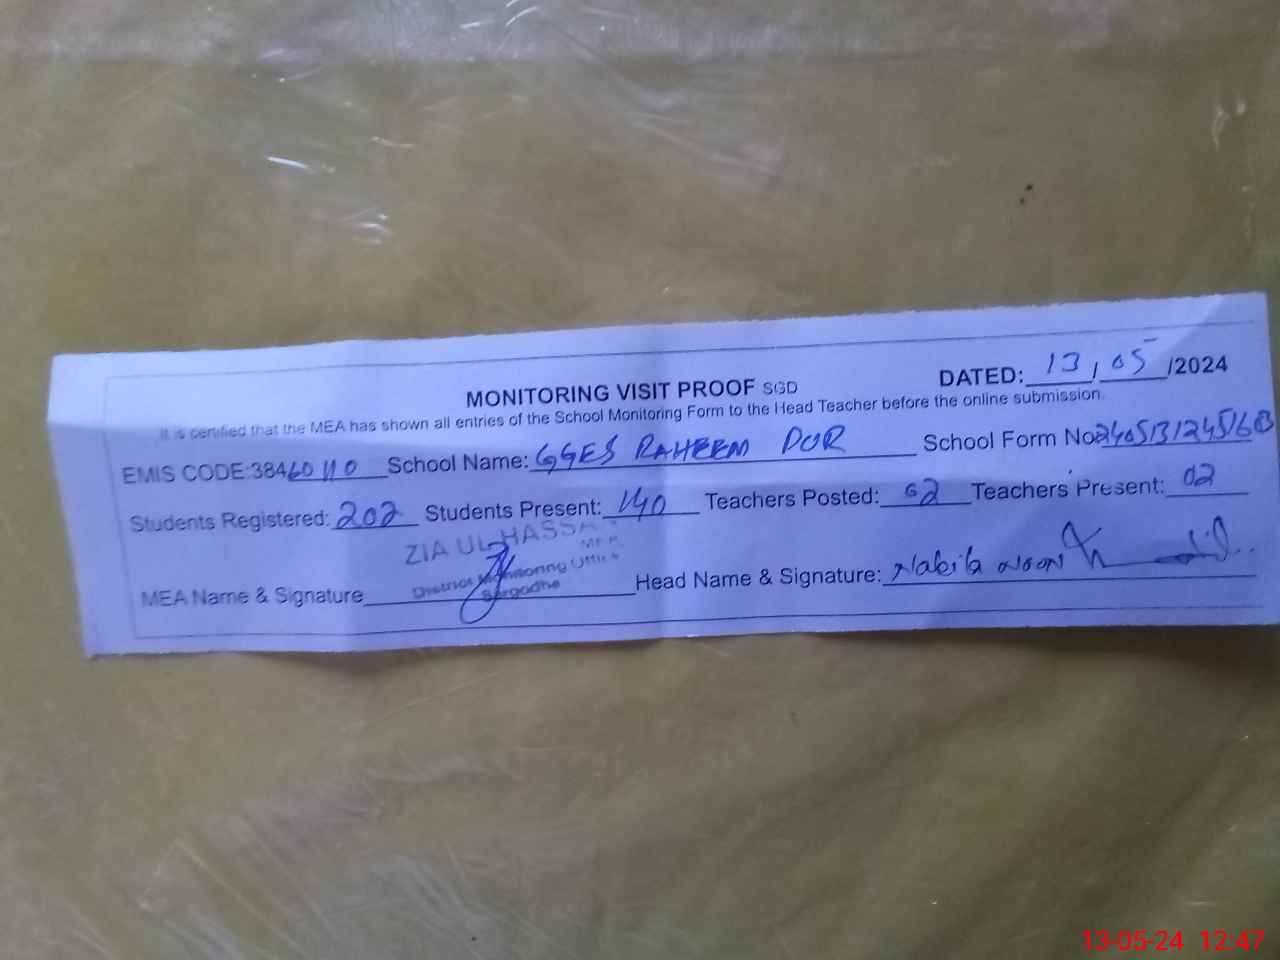 MONITORING VISIT PROOF SGD
DATED: 13/05/2024
It is certified that the MEA has shown all entries of the School Monitoring Form to the Head Teacher before the online submission.
EMIS CODE:38460110 School Name: GGES RAHEEM DOR School Form No
Students Registered: 202 Students Present: 140 Teachers Posted: 02 Teachers Present: 02
ZIA UL HASSA
MEA
District Monitoring Office
Sargodha
MEA Name & Signature Head Name & Signature: Nabila noon
13-05-24 12:47